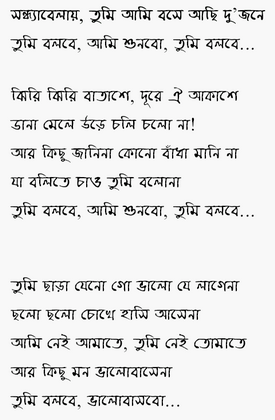 সন্ধ্যাবেলায়, তুমি আমি বসে আছি দু'জনে
তুমি বলবে, আমি শুনবো, তুমি বলবে...
ঝিরি ঝিরি বাতাশে, দূরে ঐ আকাশে
ডানা মেলে উড়ে চলি চলো না!
আর কিছু জানিনা কোনো বাঁধা মানি না
যা বলিতে চাও তুমি বলোনা
তুমি বলবে, আমি শুনবো, তুমি বলবে...
তুমি ছাড়া যেনো গো ভালো যে লাগেনা
ছলো ছলো চোখে হাসি আসেনা
আমি নেই আমাতে, তুমি নেই তোমাতে
আর কিছু মন ভালোবাসেনা
তুমি বলবে, ভালোবাসবো...